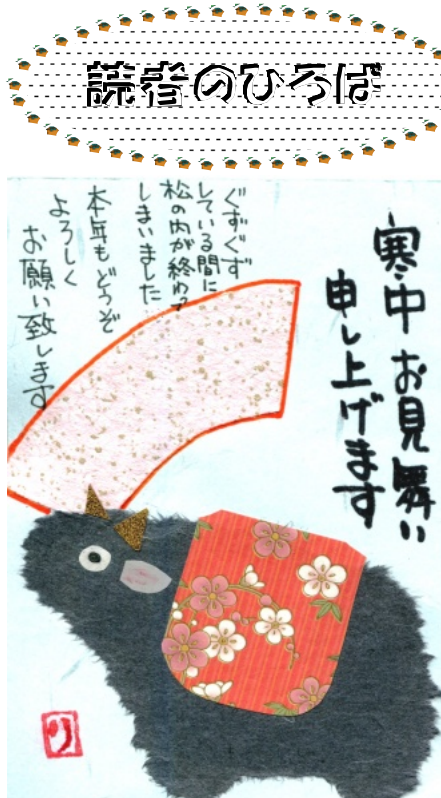 読者のひろば
寒中お見舞い
申し上げます
ぐずぐず
している間に
松の内が終わって
しまいました
本年もどうぞ
よろしく
お願い致します
り